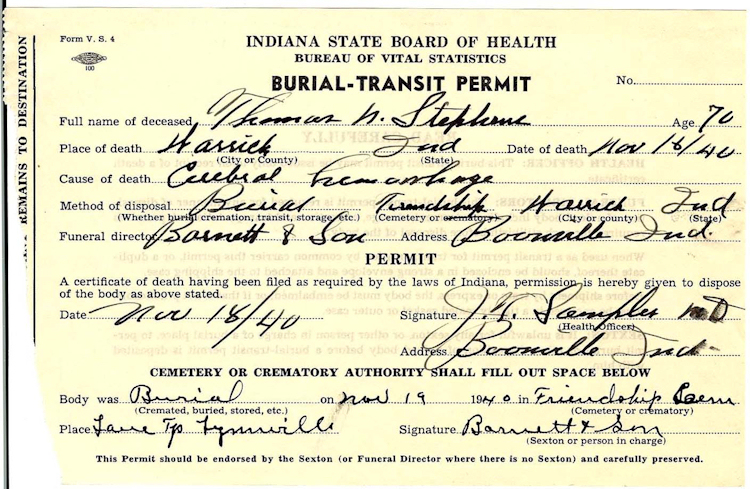 REMAINS TO DESTINATION
Form V. S. 4
100
INDIANA STATE BOARD OF HEALTH
BUREAU OF VITAL STATISTICS
BURIAL-TRANSIT PERMIT
No.
Full name of deceased Thomas N. Stephens Age 70
Place of death Warrick Ind Date of death Nov 18/40
(City or County) (State)
Cause of death Cerebral hemorrhage
Method of disposal Burial Friendship Warrick Ind
(Whether burial cremation, transit, storage, etc.) (Cemetery or crematory) (City or county) (State)
Funeral director Barnett & Son Address Boonville Ind.
PERMIT
A certificate of death having been filed as required by the laws of Indiana, permission is hereby given to dispose
of the body as above stated.
Date Nov 18/40 Signature J. Sampler MD
(Health Officer)
Address Boonville Ind
CEMETERY OR CREMATORY AUTHORITY SHALL FILL OUT SPACE BELOW
Body was Burial on Nov 19 1940 in Friendship Cem
(Cremated, buried, stored, etc.) (Cemetery or crematory)
Place Lane Tp Lynnville Signature Barnett & Son
(Sexton or person in charge)
This Permit should be endorsed by the Sexton (or Funeral Director where there is no Sexton) and carefully preserved.